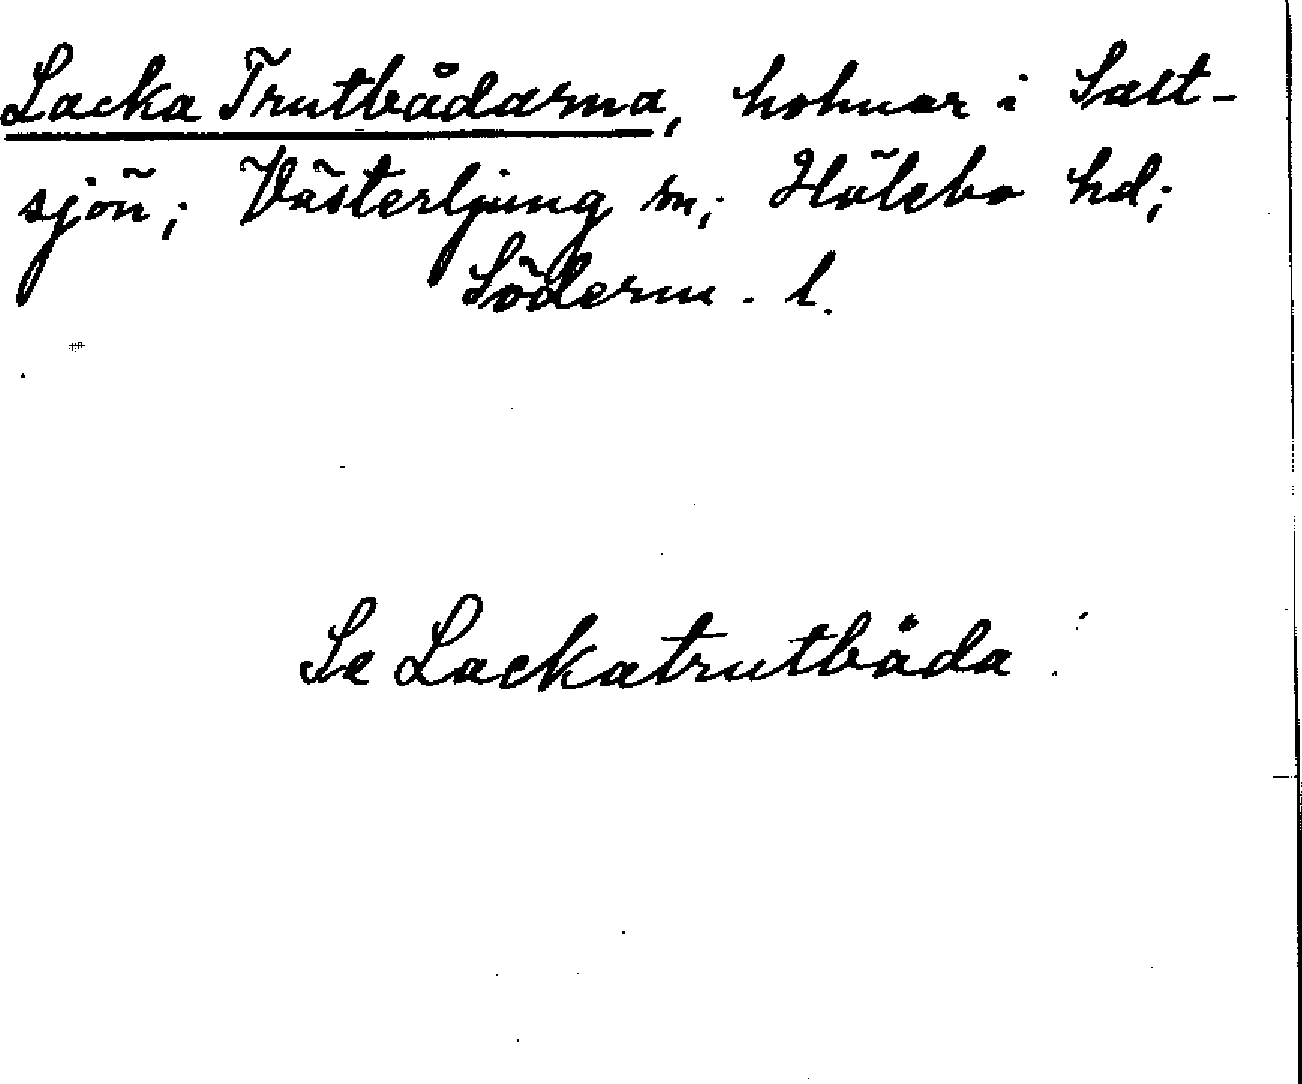 Lacka Trutbådarna, holmar i Salt-
sjön; Västerljung sn; Hölebo hd;
Söderm. l.
Se Lackatrutbåda.